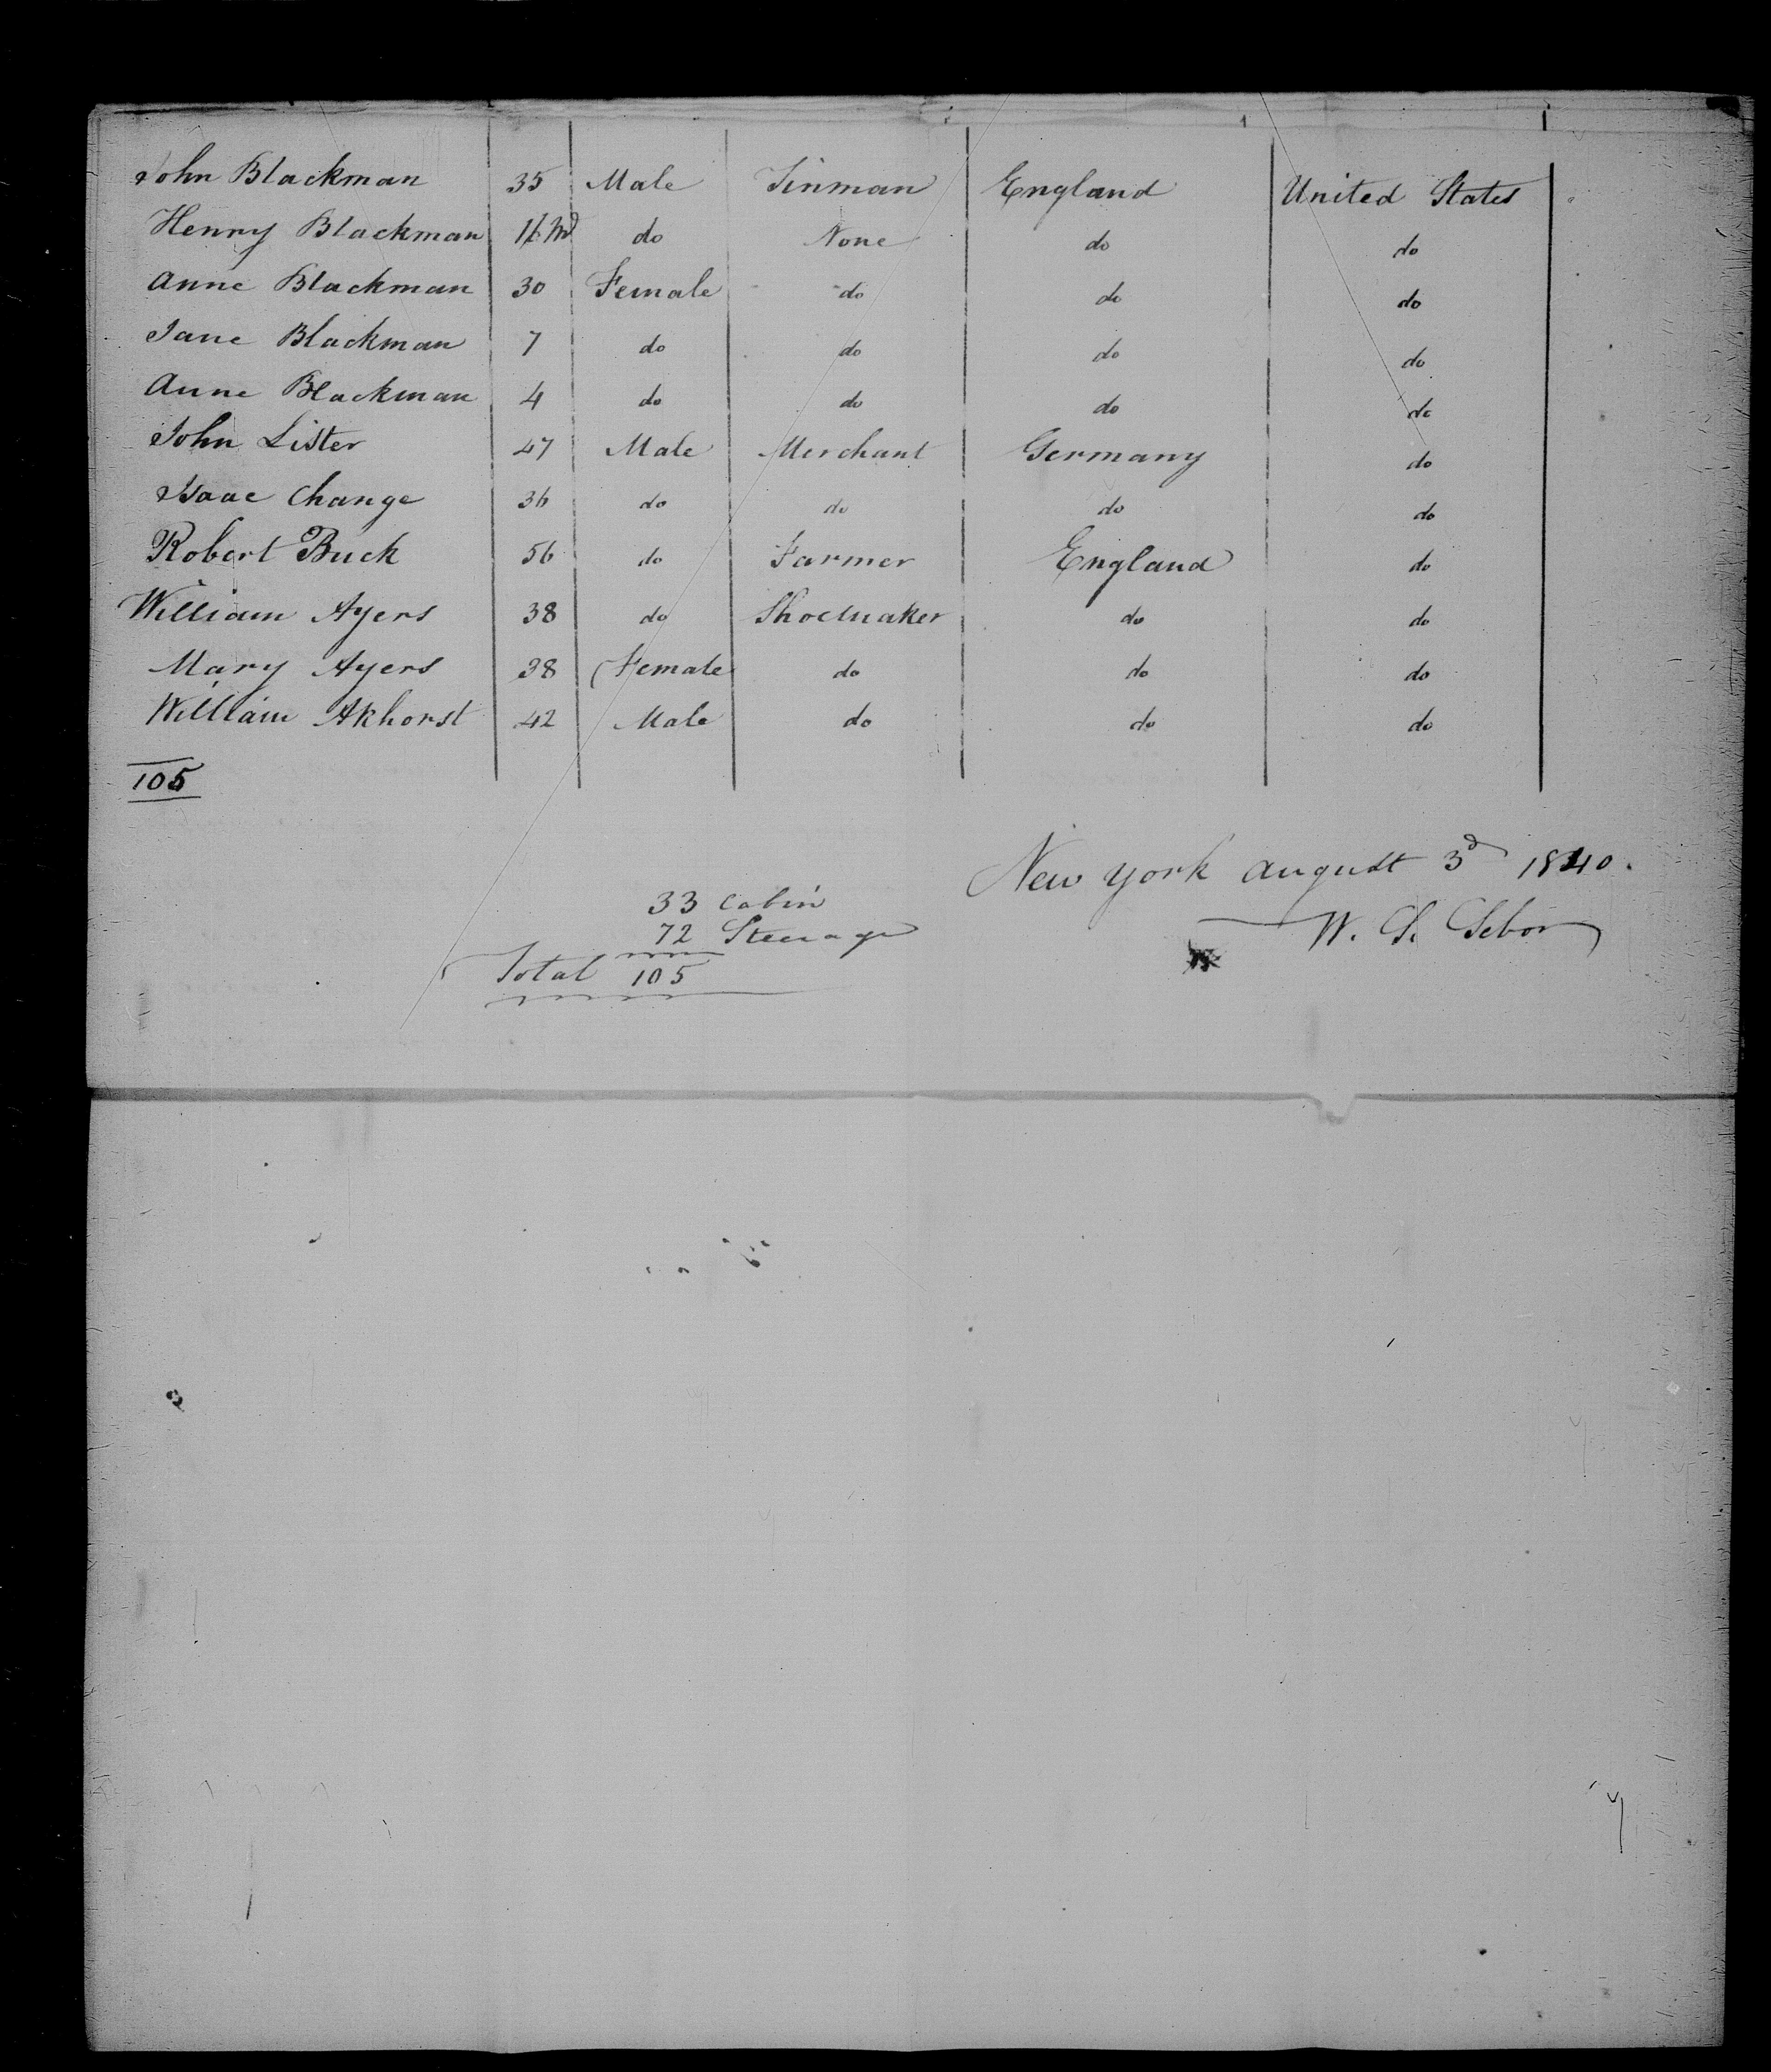 John Blackman 35 Male Tinman England United States
Henry Blackman do None do do
Anne Blackman 30 Female do do do
Jane Blackman 7 do do do do
Anne Blackman 4 do do do do
John Lister 47 Male Merchant Germany do
Isaac Change 36 do do do do
Robert Buck 56 do Farmer England do
William Ayers 38 do Shoemaker do do
Mary Ayers 38 Female do do do
William Akhorst 42 Male do do do
105
New York August 3d 1840.
33 Cabin
W. S. Sebor
72 Steerage
Total 105